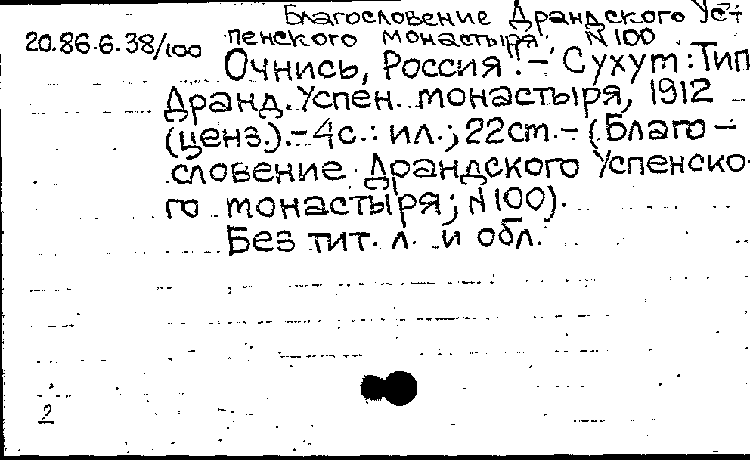 Благословение Драндского Ус+
20.86.6.38/100 пенского монастыря, N 100
Очнись, Россия! – Сухум: Тип.
Дранд. Успен. монастыря, 1912
(ценз.).– 4с.: ил.; 22cm.– (Благо–
словение Драндского Успенско-
го монастыря; N 100).
Без тит. л. и обл.
2